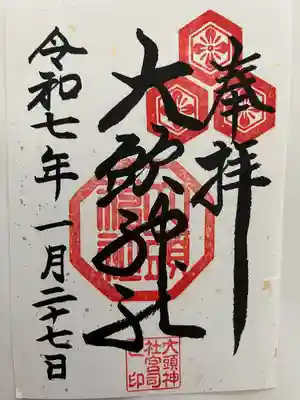 奉拝
大頭神社
令和七年 一月二十七日
大頭神社
大頭神
社宮司
之印